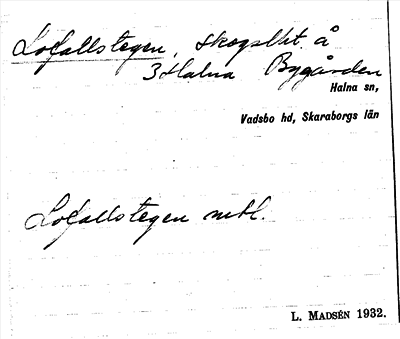 Lofallstegen, skogsskt. å
3 Halna Bygården
Halna sn,
Vadsbo hd, Skaraborgs län
Lofallstegen mtl.
L. MADSÉN 1932.